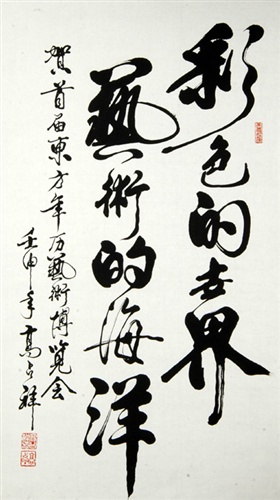 彩色的世界
藝術的海洋
賀首届東方年历藝術博览会
壬申年高占祥